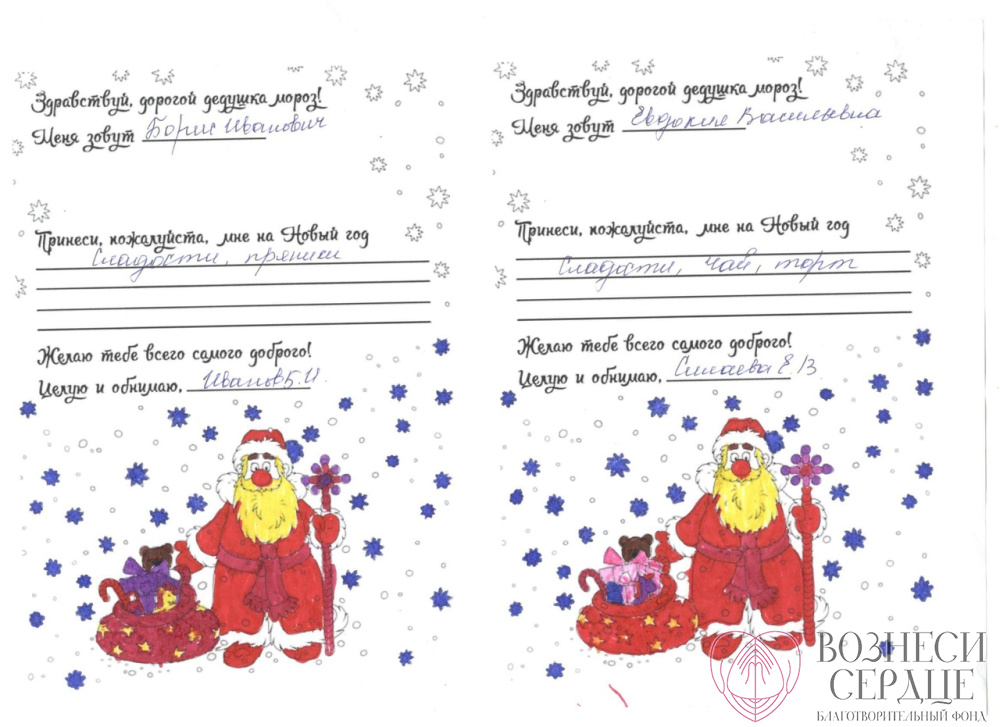 Здравствуй, дорогой дедушка мороз!
Меня зовут Борис Иванович
Принеси, пожалуйста, мне на Новый год
Сладости, пряники
Желаю тебе всего самого доброго!
Целую и обнимаю, Иванов Б.И.
Здравствуй, дорогой дедушка мороз!
Меня зовут Евдокия Васильевна
Принеси, пожалуйста, мне на Новый год
Сладости, чай, торт
Желаю тебе всего самого доброго!
Целую и обнимаю, Силаева Е.В
ВОЗНЕСИ
СЕРДЦЕ
БЛАГОТВОРИТЕЛЬНЫЙ ФОНД